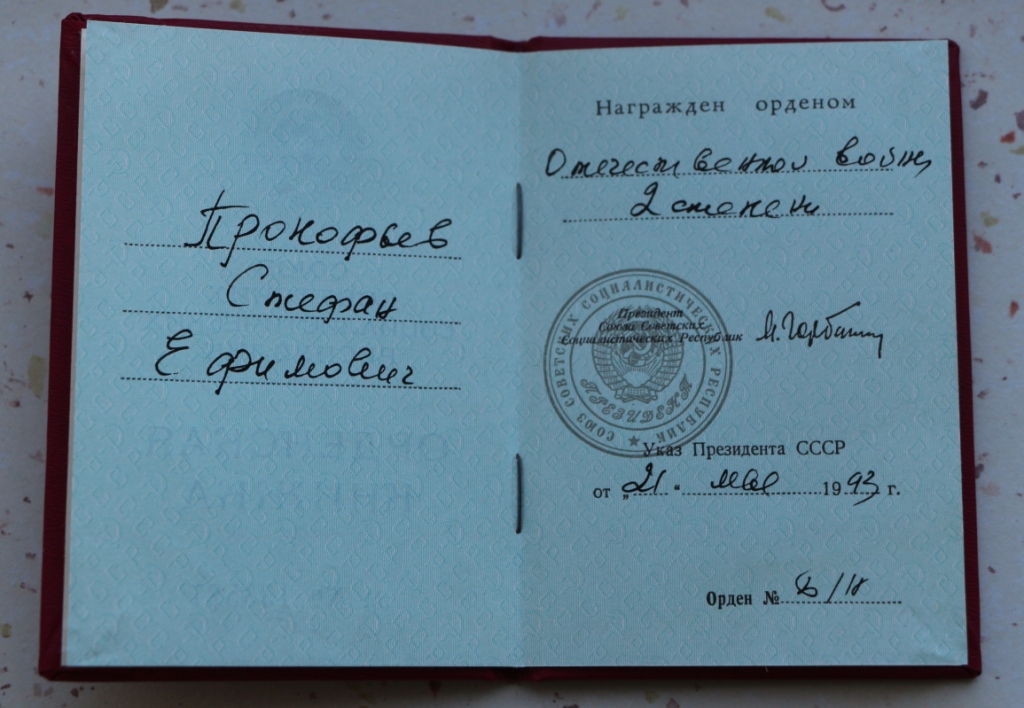 Прокофьев
Стефан
Ефимович
Награжден орденом
Отечественной войны
2 степени
СОЮЗ СОВЕТСКИХ СОЦИАЛИСТИЧЕСКИХ РЕСПУБЛИК
ПРЕЗИДЕНТ
Президент
Союза Советских
Социалистических Республик М. Горбачев
Указ Президента СССР
от „21“ мая 1993 г.
Орден № Б/н